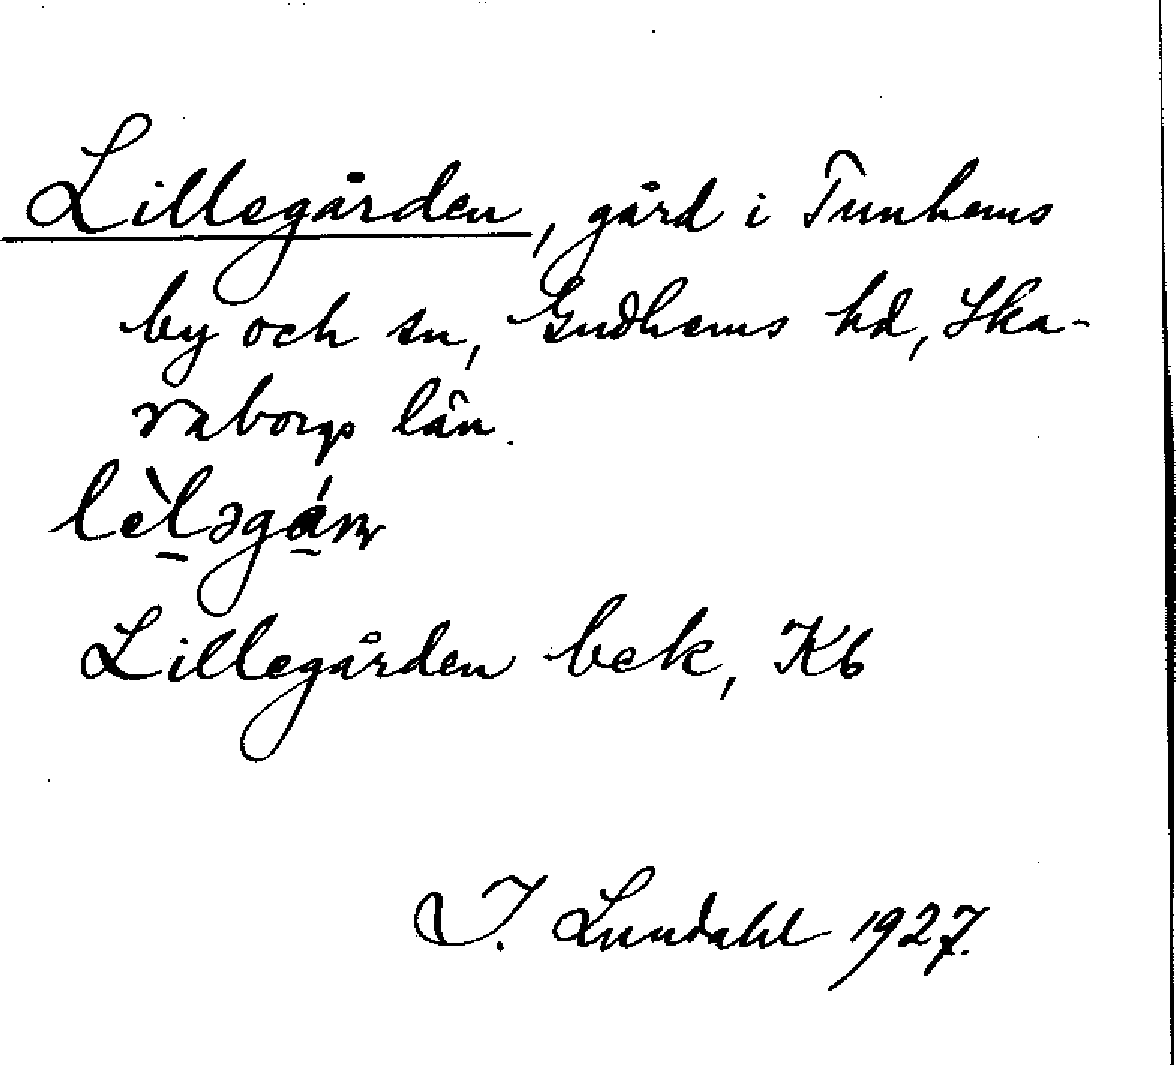 Lillegården, gård i Tunhems
by och sn, Gudhems hd, Ska-
raborgs län.
Lillegården bek, Kb
I. Lundahl 1927.